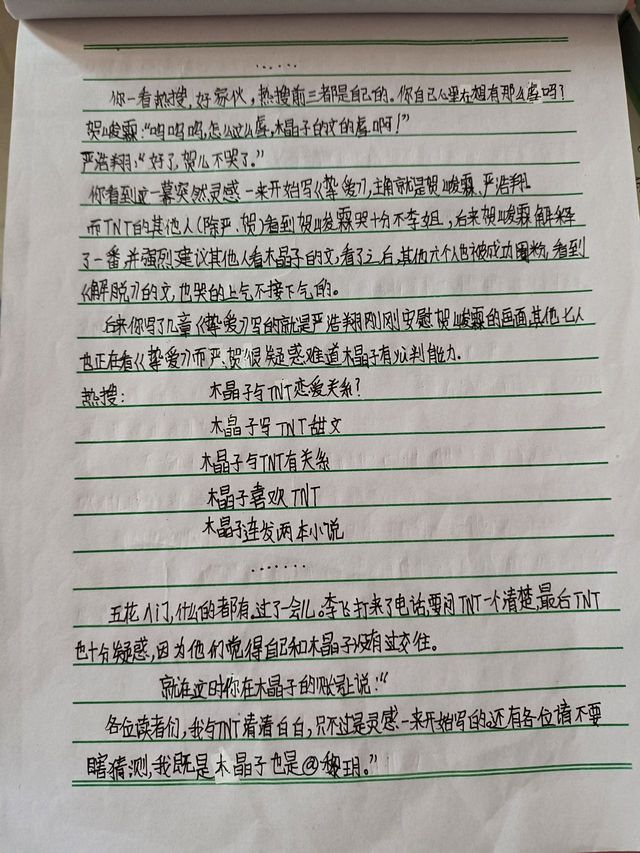 ……
你一看热搜,好家伙,热搜前三都是自己的。你自己心里在想有那么虐吗?
贺峻霖:“呜呜呜,怎么这么虐,木晶子的文的虐啊!”
严浩翔:“好了,贺儿不哭了。”
你看到这一幕突然灵感一来开始写《挚爱》,主角就是贺峻霖、严浩翔.
而TNT的其他人(除严、贺)看到贺峻霖哭十分不李姐,后来贺峻霖解释
了一番,并强烈建议其他人看木晶子的文,看了之后,其他六个人也被成功圈粉,看到
《解脱》的文,也哭的上气不接下气的。
后来你写了几章《挚爱》写的就是严浩翔刚刚安慰贺峻霖的画面,其他七人
也正在看《挚爱》而严、贺很疑惑难道木晶子有公判能力.
热搜: 木晶子与TNT恋爱关系?
木晶子写TNT甜文
木晶子与TNT有关系
木晶子喜欢TNT
木晶子连发两本小说
……
五花八门,什么的都有,过了一会儿。李飞打来了电话,要问TNT一个清楚,最后TNT
也十分疑惑,因为他们觉得自己和木晶子没有过交往。
就在这时你在木晶子的账号上说:“
各位读者们,我与TNT清清白白,只不过是灵感一来开始写的。还有各位请不要
瞎猜测,我既是木晶子也是@黎玥。”